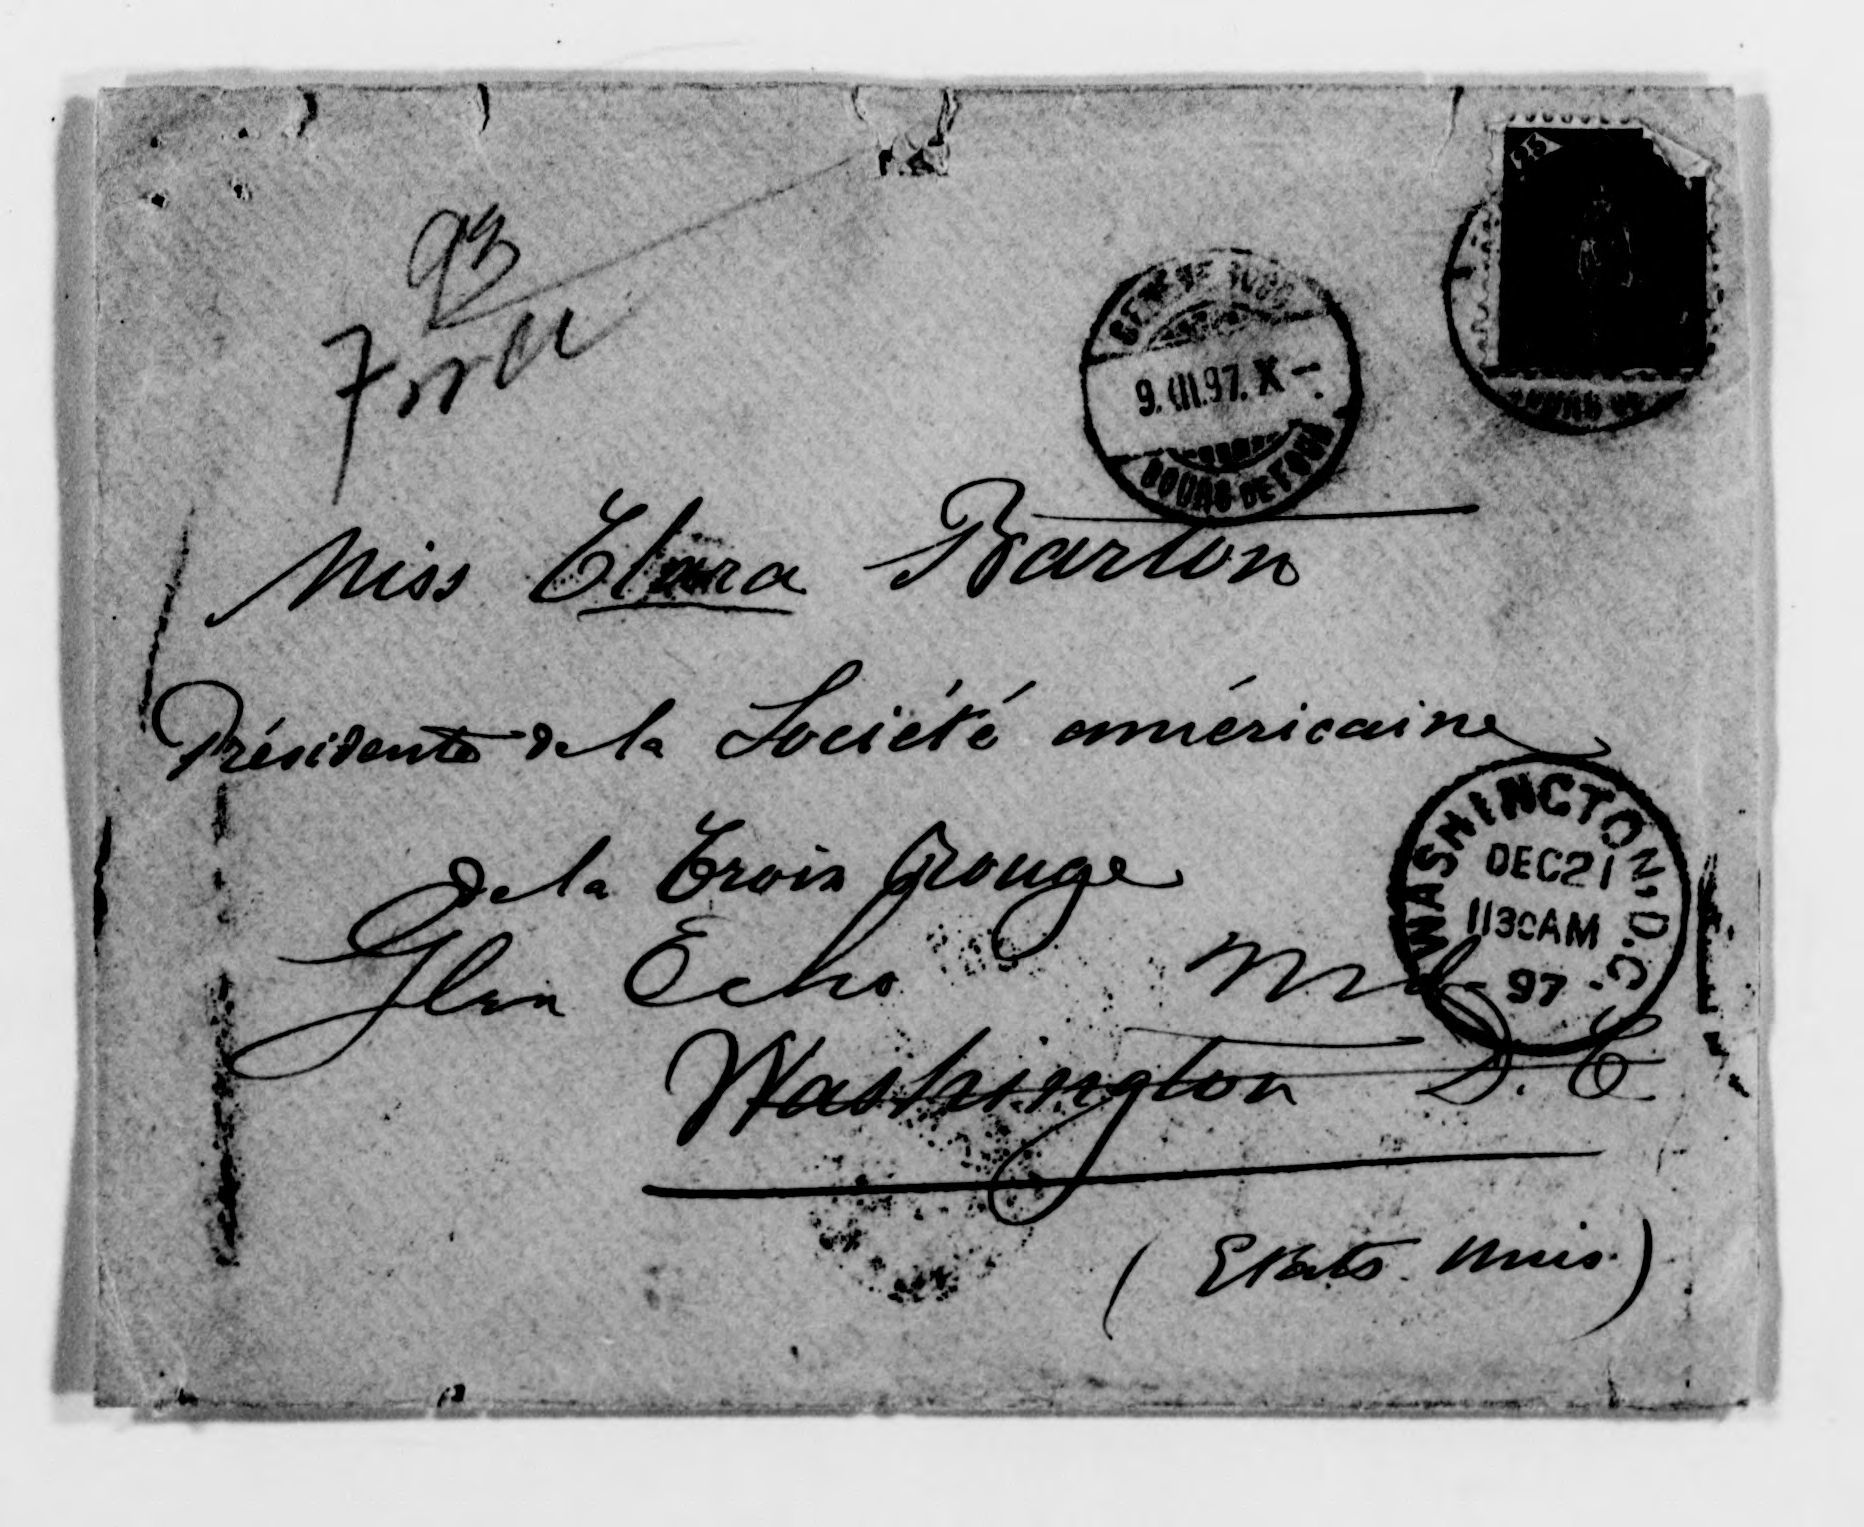 93
25
GENÈVE
9.XII.97.X
BOURG DE FOUR
Miss Clara Barton
Présidente de la Société américaine
de la Croix Rouge
Glen Echo Md-
Washington D. C
(Etats Unis.)
WASHINGTON, D.C.
DEC 21
1130AM
97